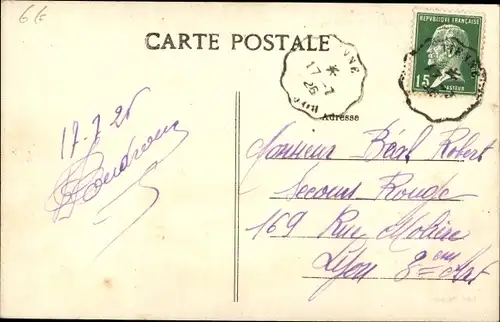 6 E
CARTE POSTALE
17-7
26
REPUBLIQUE FRANÇAISE
15
PASTEUR
Adresse
17.7.26
Monsieur Béal Robert
Secours Rouge
169 Rue Molière
Lyon 3=em Art